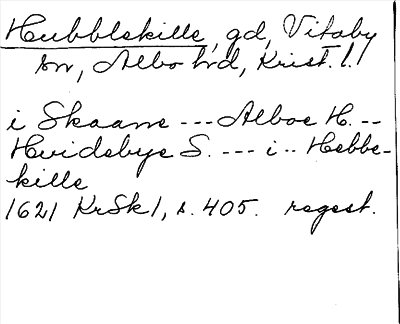 Hubbleskille, gd, Vitaby
sn, Albo hd, Krist. l.
i Skaane --- Alboe H. --
Hvidebye S. --- i -- Hebbe-
kille
1621 KrSk 1, s. 405. regest.